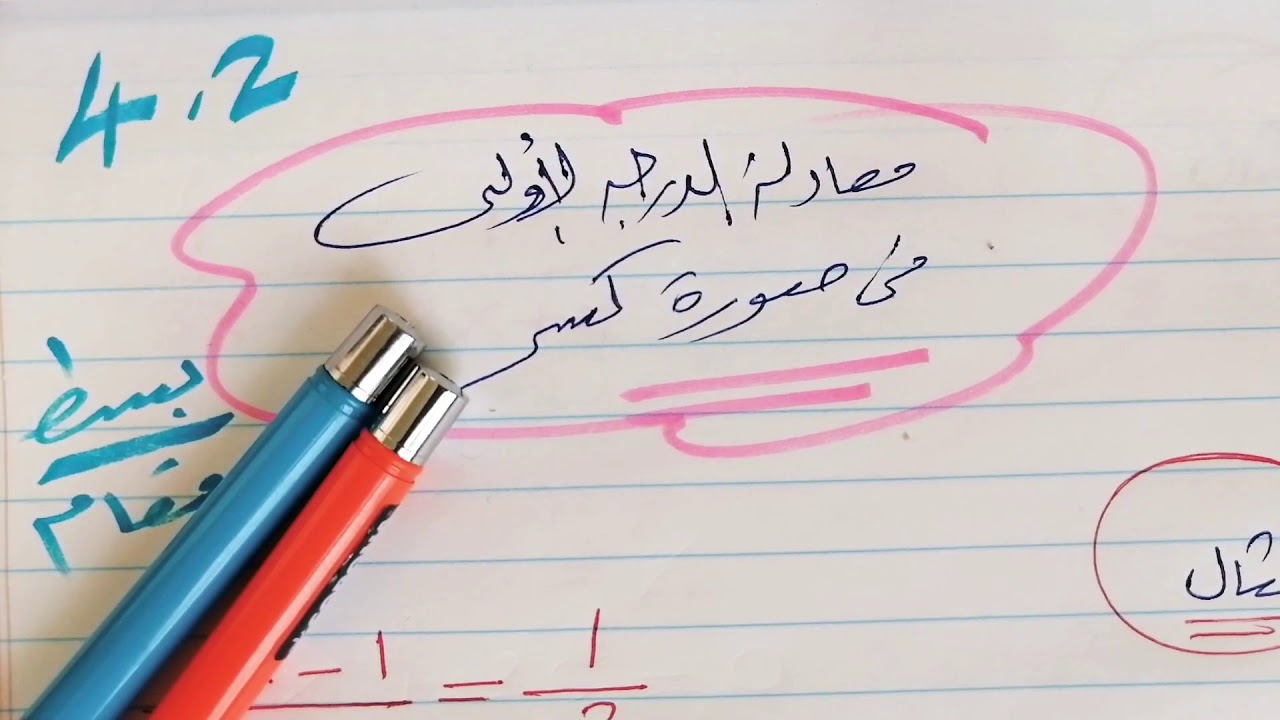 4.2
معادلة الدرجه الأولى
في صورة كسر
بسط
مقام
مثال
- 1 = 1